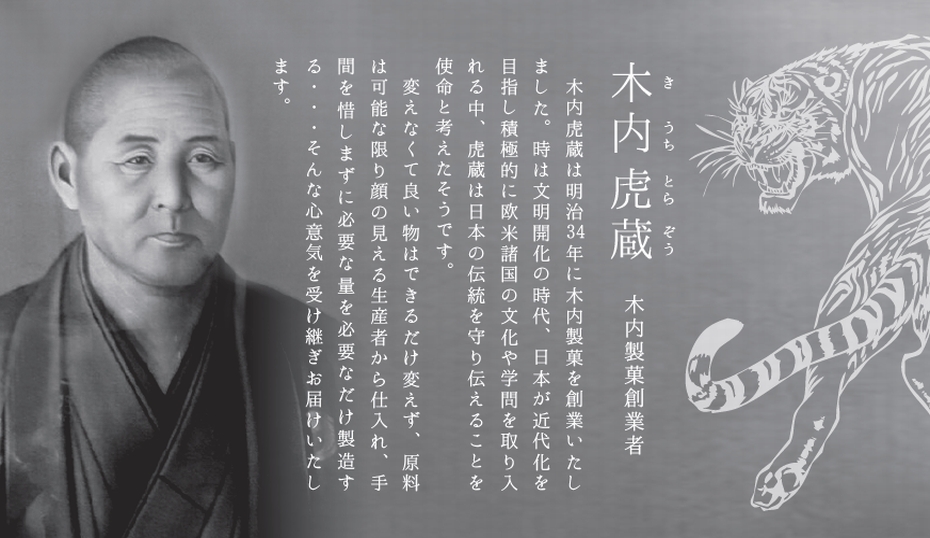 き うち とら ぞう
木内 虎蔵 木内製菓創業者
木内虎蔵は明治34年に木内製菓を創業いたし
ました。時は文明開化の時代、日本が近代化を
目指し積極的に欧米諸国の文化や学問を取り入
れる中、虎蔵は日本の伝統を守り伝えることを
使命と考えたそうです。
変えなくて良い物はできるだけ変えず、原料
は可能な限り顔の見える生産者から仕入れ、手
間を惜しまずに必要な量を必要なだけ製造す
る・・・そんな心意気を受け継ぎお届けいたし
ます。